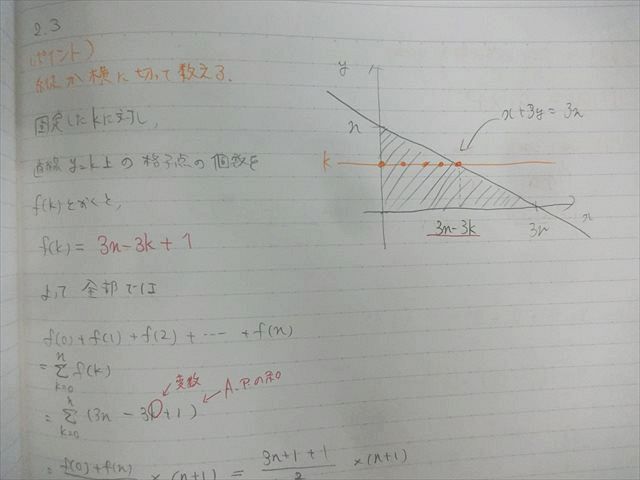 2.3
(ポイント)
縦か横に切って数える.
固定したkに対し,
直線 y=k上の格子点の個数を
f(k)とかくと,
f(k) = 3n-3k+1
よって 全部では
f(0)+f(1)+f(2)+ … +f(n)
= Σ_{k=0}^{n} f(k)
変数
A.P.の和
= Σ_{k=0}^{n} (3n - 3k + 1)
= f(0)+f(n) × (n+1) = (3n+1+1)/2 × (n+1)
y
x+3y=3n
n
k
3n-3k
3n
x